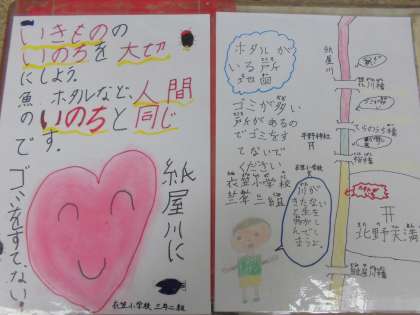 いきものの
いのちを大切
にしよう。
魚の
ホタルなど、人間
のいのちと同じ
です。
紙屋川に
ゴミをすてない。
衣笠小学校 三年二組
ホタルが
いる所
地面
ゴミが多い
所があるの
でゴミをす
てないで
ください
衣笠小学校
三年二組
川が
きたない
と生き
紙屋川
平野神社
衣笠小学校
てらのうち橋
桜橋
北野天満